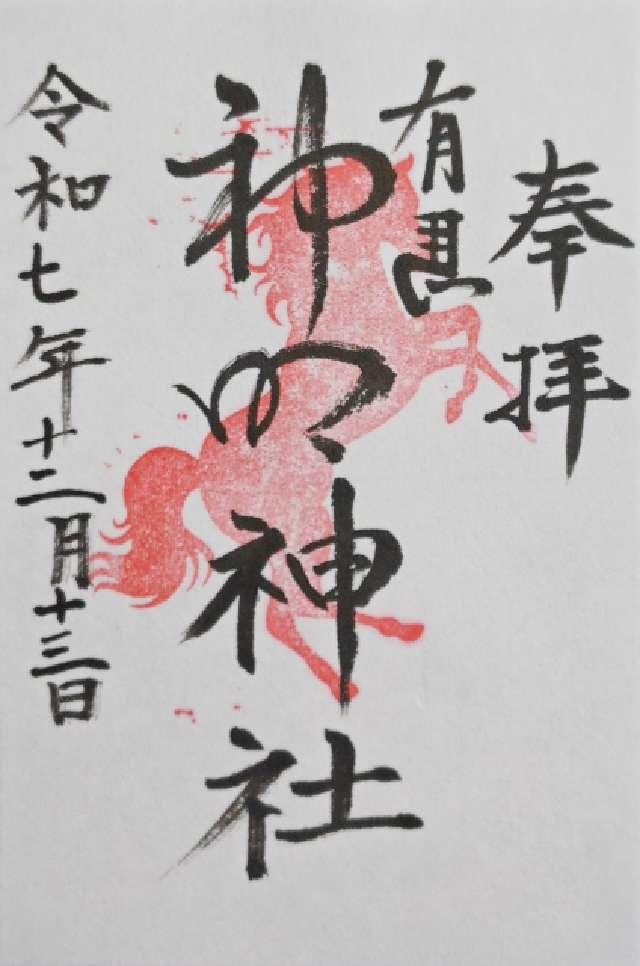 奉拝
有馬
神明神社
令和七年十二月十三日